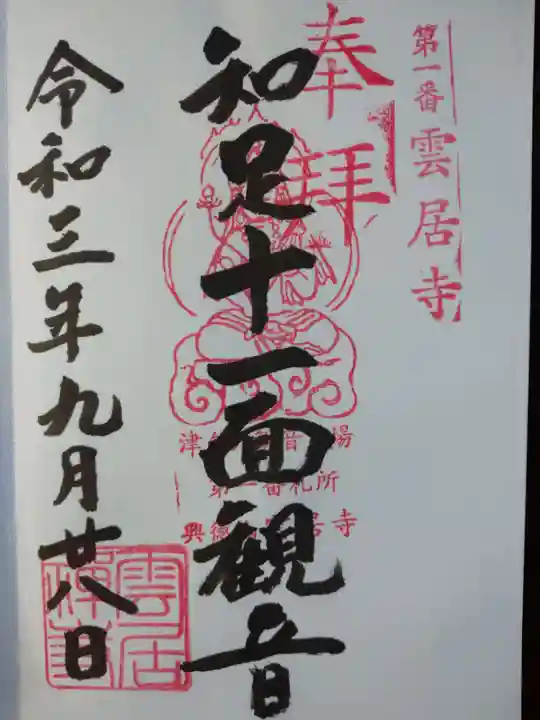 第一番 雲居寺
奉拝
知足十一面観音
津 場
第一番札所
興徳 居寺
令和三年九月廿八日
雲居